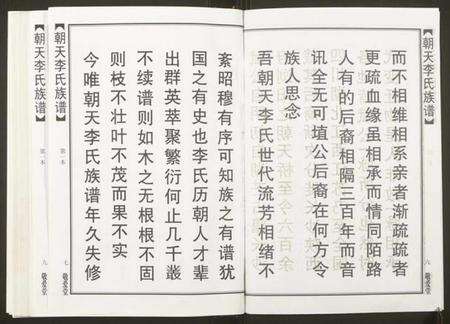 【朝天李氏族谱】
六
而不相维相系亲者渐疏疏者
更疏血缘虽相承而情同陌路
人有的后裔相隔三百年而音
讯全无可壇公后裔在何方令
族人思念
吾朝天李氏世代流芳相绪不
紊昭穆有序可知族之有谱犹
国之有史也李氏历朝人才辈
出群英萃聚繁衍何止几千叢
不续谱则如木之无根根不固
则枝不壮叶不茂而果不实
今唯朝天李氏族谱年久失修
【朝天李氏族谱】
第一本
七
【朝天李氏族谱】
第一本
九